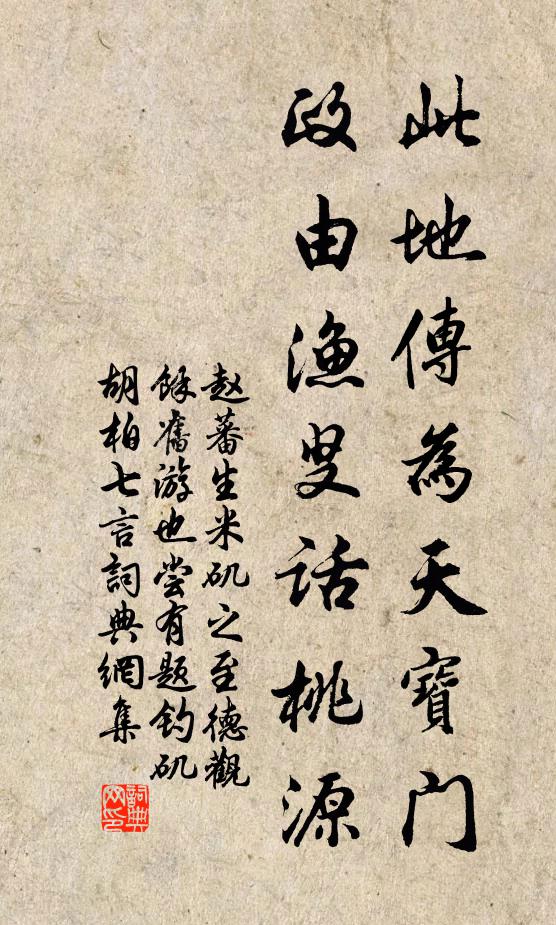 此地傳為天寶門
政由漁叟話桃源
赵蕃生米矶之至德觀
餘舊游也尝有题钓矶
胡柏七言詞典網集
詞典
网印